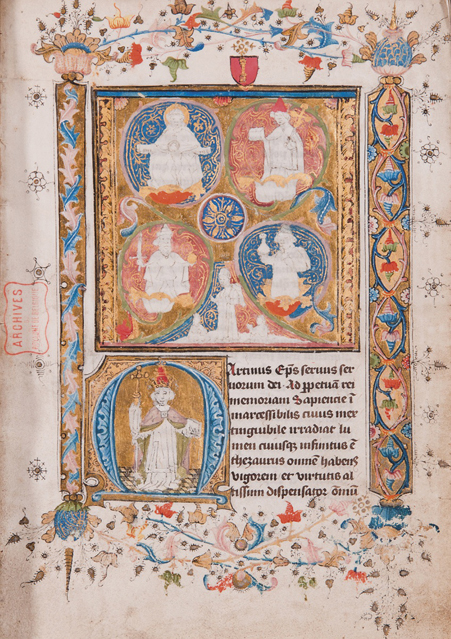 MArtinus Ep̄s seruus ser
uorum dei . Ad ꝑpetuā rei
memoriam Sapiencie ī
marcessibilis cuius inex
tinguibile irradiat lu
men cuiusqꝫ infinitus ē
thezaurus omnē habens
vigorem et virtutis al
tissim dispensator om̄iū
ARCHIVES